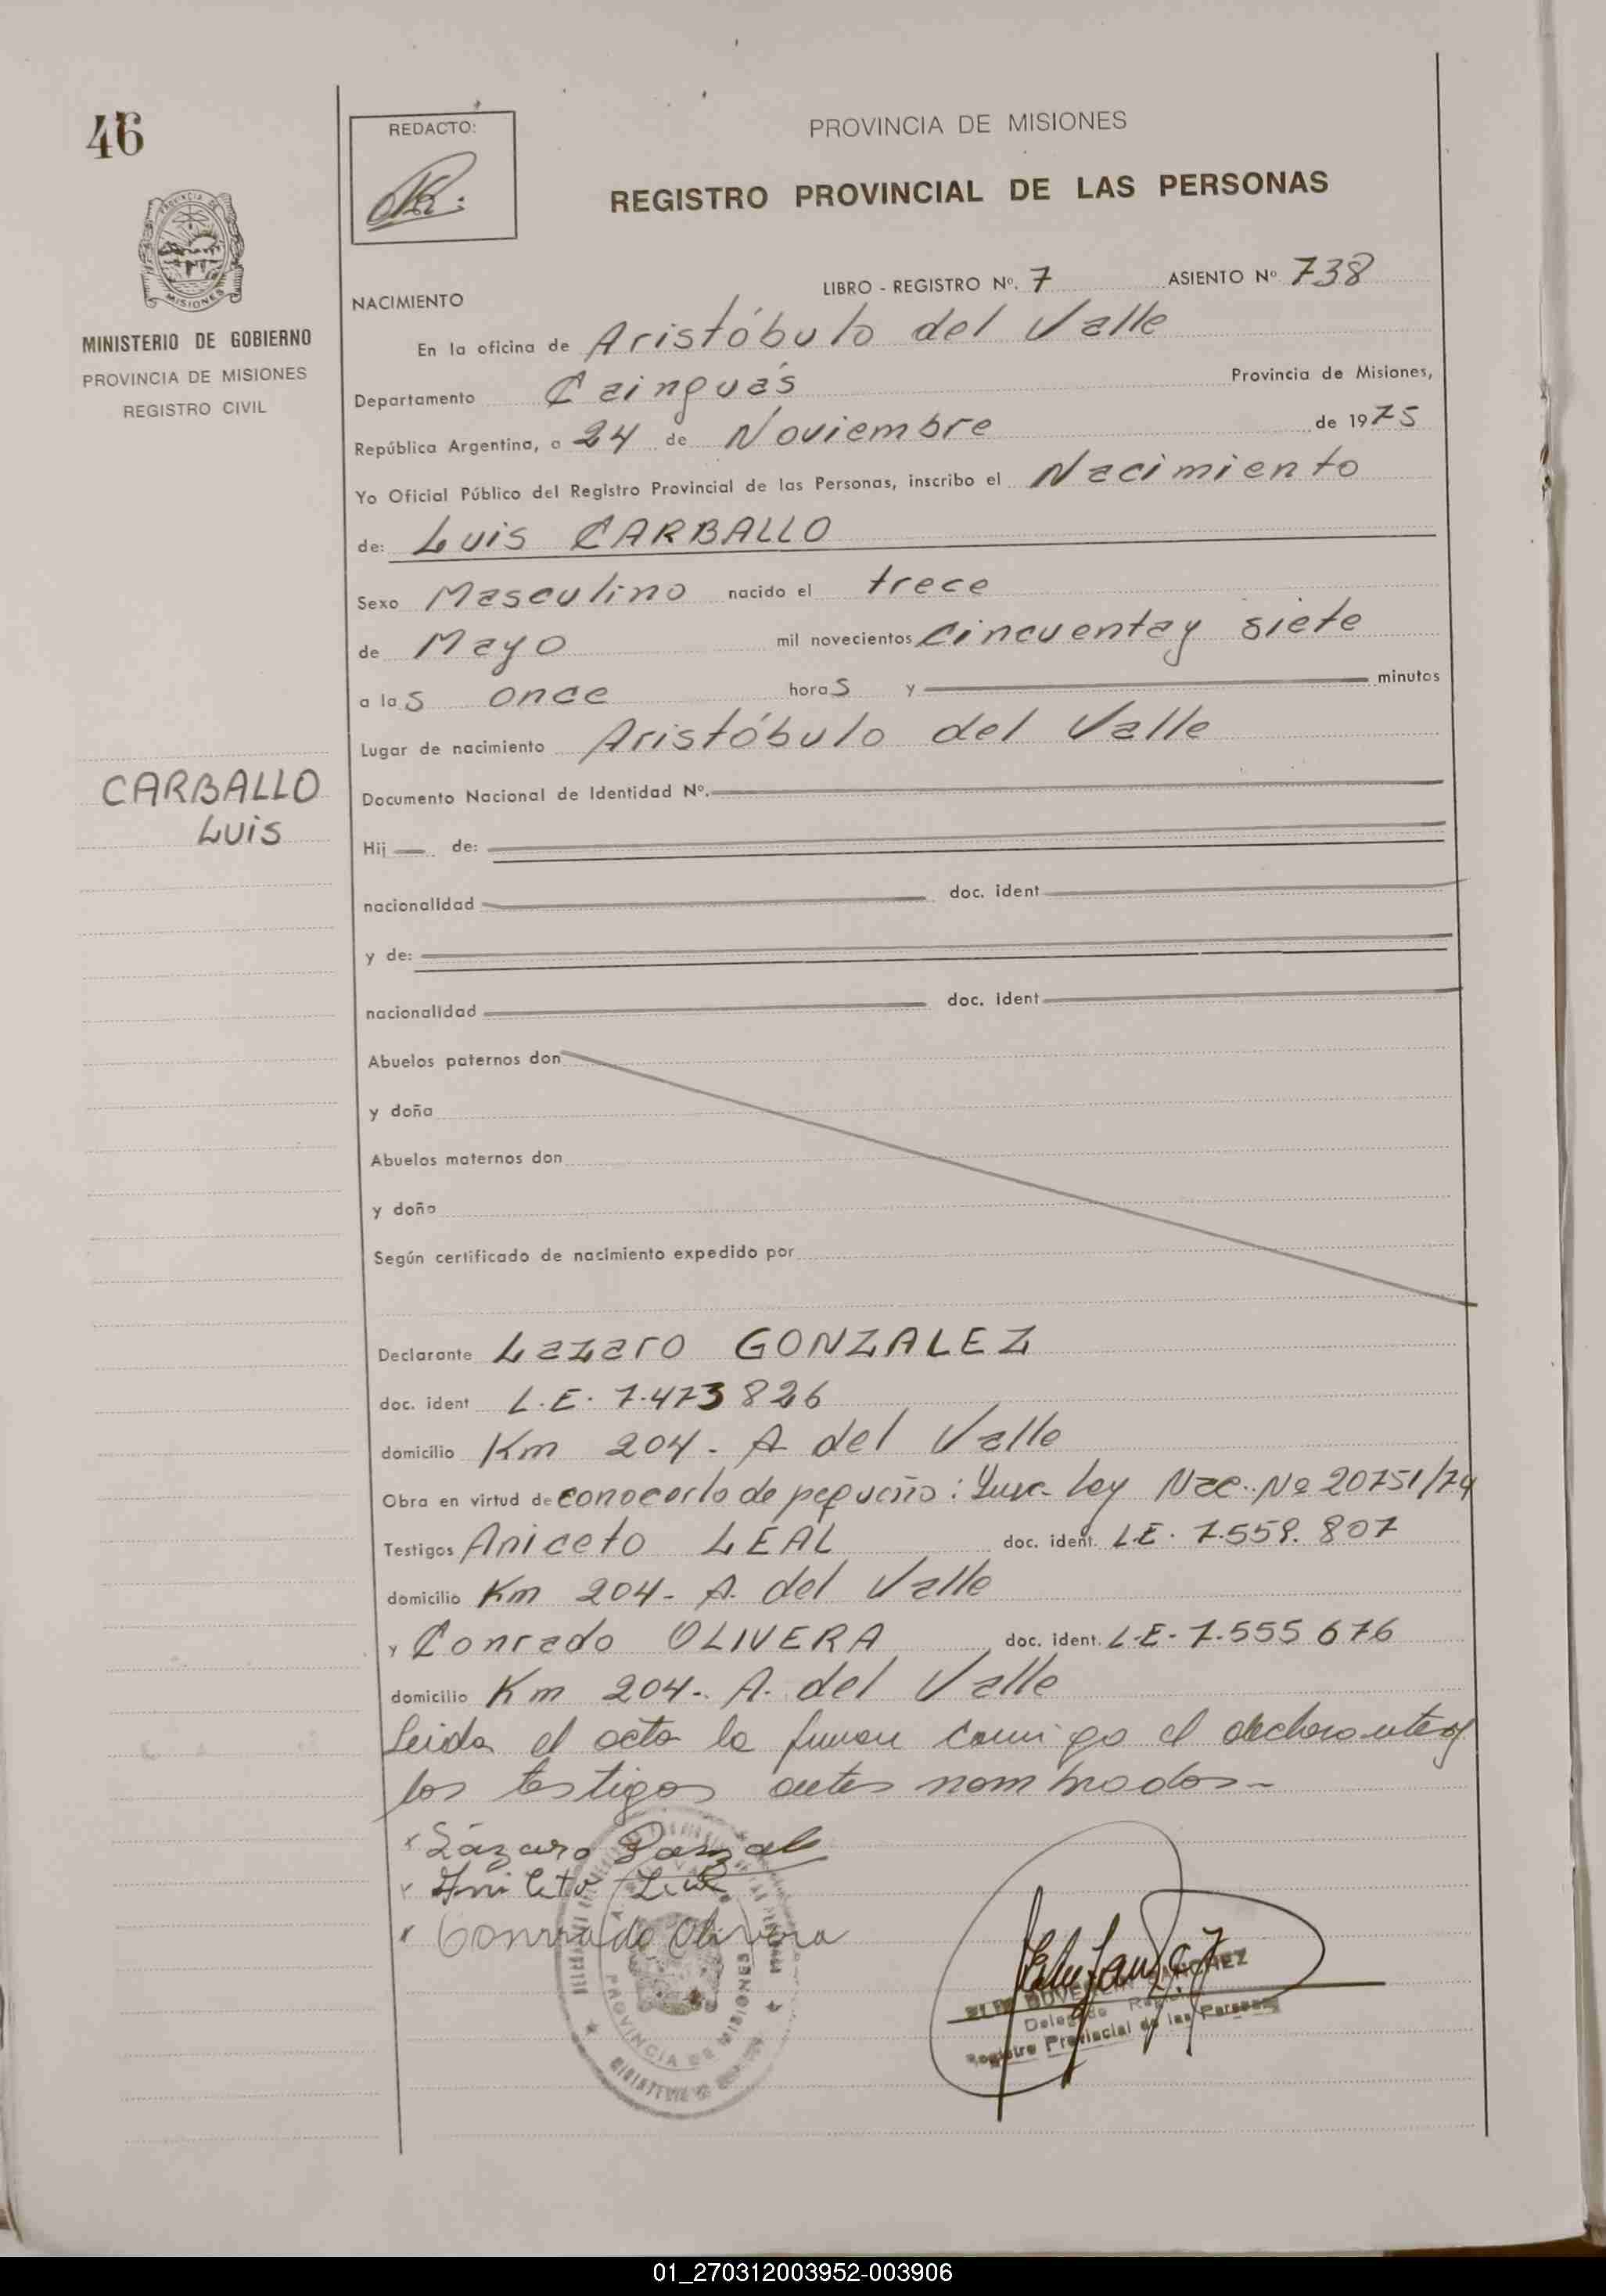 46
REDACTO:
PROVINCIA DE MISIONES
REGISTRO PROVINCIAL DE LAS PERSONAS
MISIONES
MINISTERIO DE GOBIERNO
PROVINCIA DE MISIONES
REGISTRO CIVIL
LIBRO - REGISTRO Nº. 7 ASIENTO Nº 738
NACIMIENTO
En la oficina de Aristóbulo del Valle
Departamento Cainguás Provincia de Misiones,
República Argentina, a 24 de Noviembre de 1975
Yo Oficial Público del Registro Provincial de las Personas, inscribo el Nacimiento
de: Luis CARBALLO
Sexo Masculino nacido el trece
de Mayo mil novecientos cincuenta y siete
a las once horas y minutos
Lugar de nacimiento Aristóbulo del Valle
CARBALLO
Luis
Documento Nacional de Identidad Nº.
Hij de:
nacionalidad doc. ident
y de:
nacionalidad doc. ident
Abuelos paternos don
y doña
Abuelos maternos don
y doña
Según certificado de nacimiento expedido por
Declarante Lazaro GONZALEZ
doc. ident L.E. 7.473826
domicilio Km 204. A del Valle
Obra en virtud de conocerlo de pequeño: Ley Nac. Nº 20751/74
Testigos Aniceto LEAL doc. ident. L.E. 7.559.807
domicilio Km 204- A. del Valle
y Conrado OLIVERA doc. ident. L.E. 7.555676
domicilio Km 204-. A. del Valle
Leida el acta la firman conmigo el declarante y
los testigos antes nombrados-
Lázaro
Conrrado Olivera
PROVINCIA DE MISIONES
SANCHEZ
Registro Provincial de las Personas
01_270312003952-003906